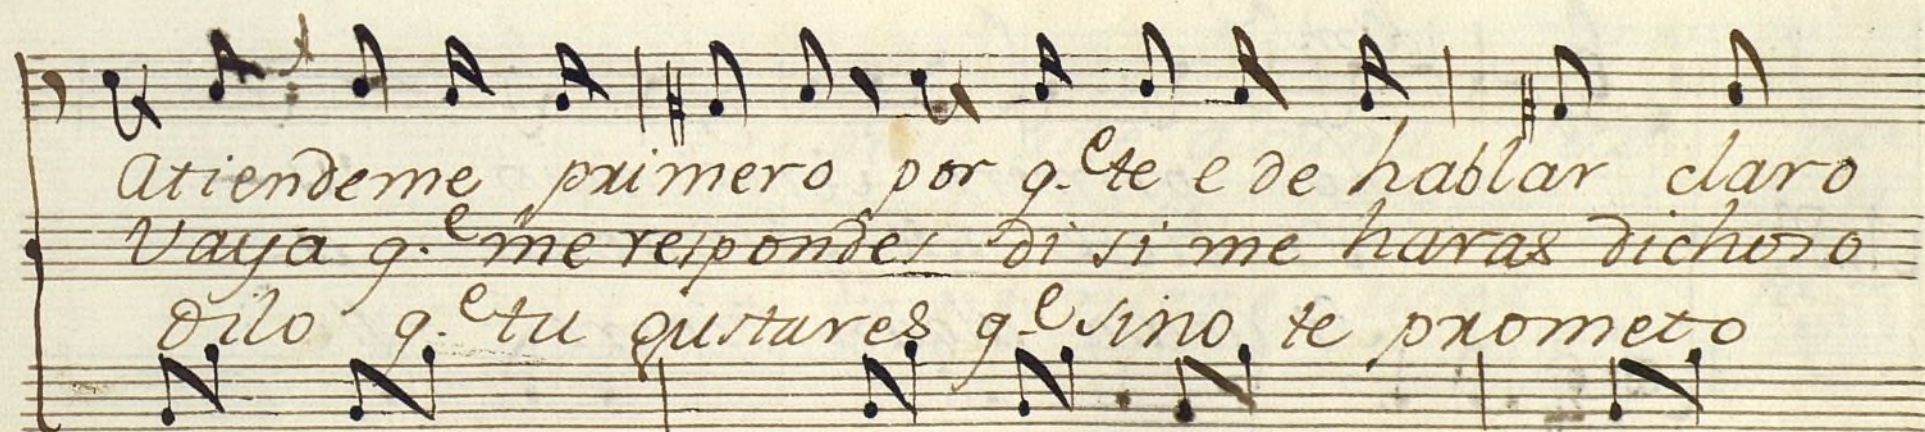 Atiendeme primero por q.e te e de hablar claro
Vaya q.e me respondes di si me haras dichoso
dilo q.e tu gustares q.e sino te prometo